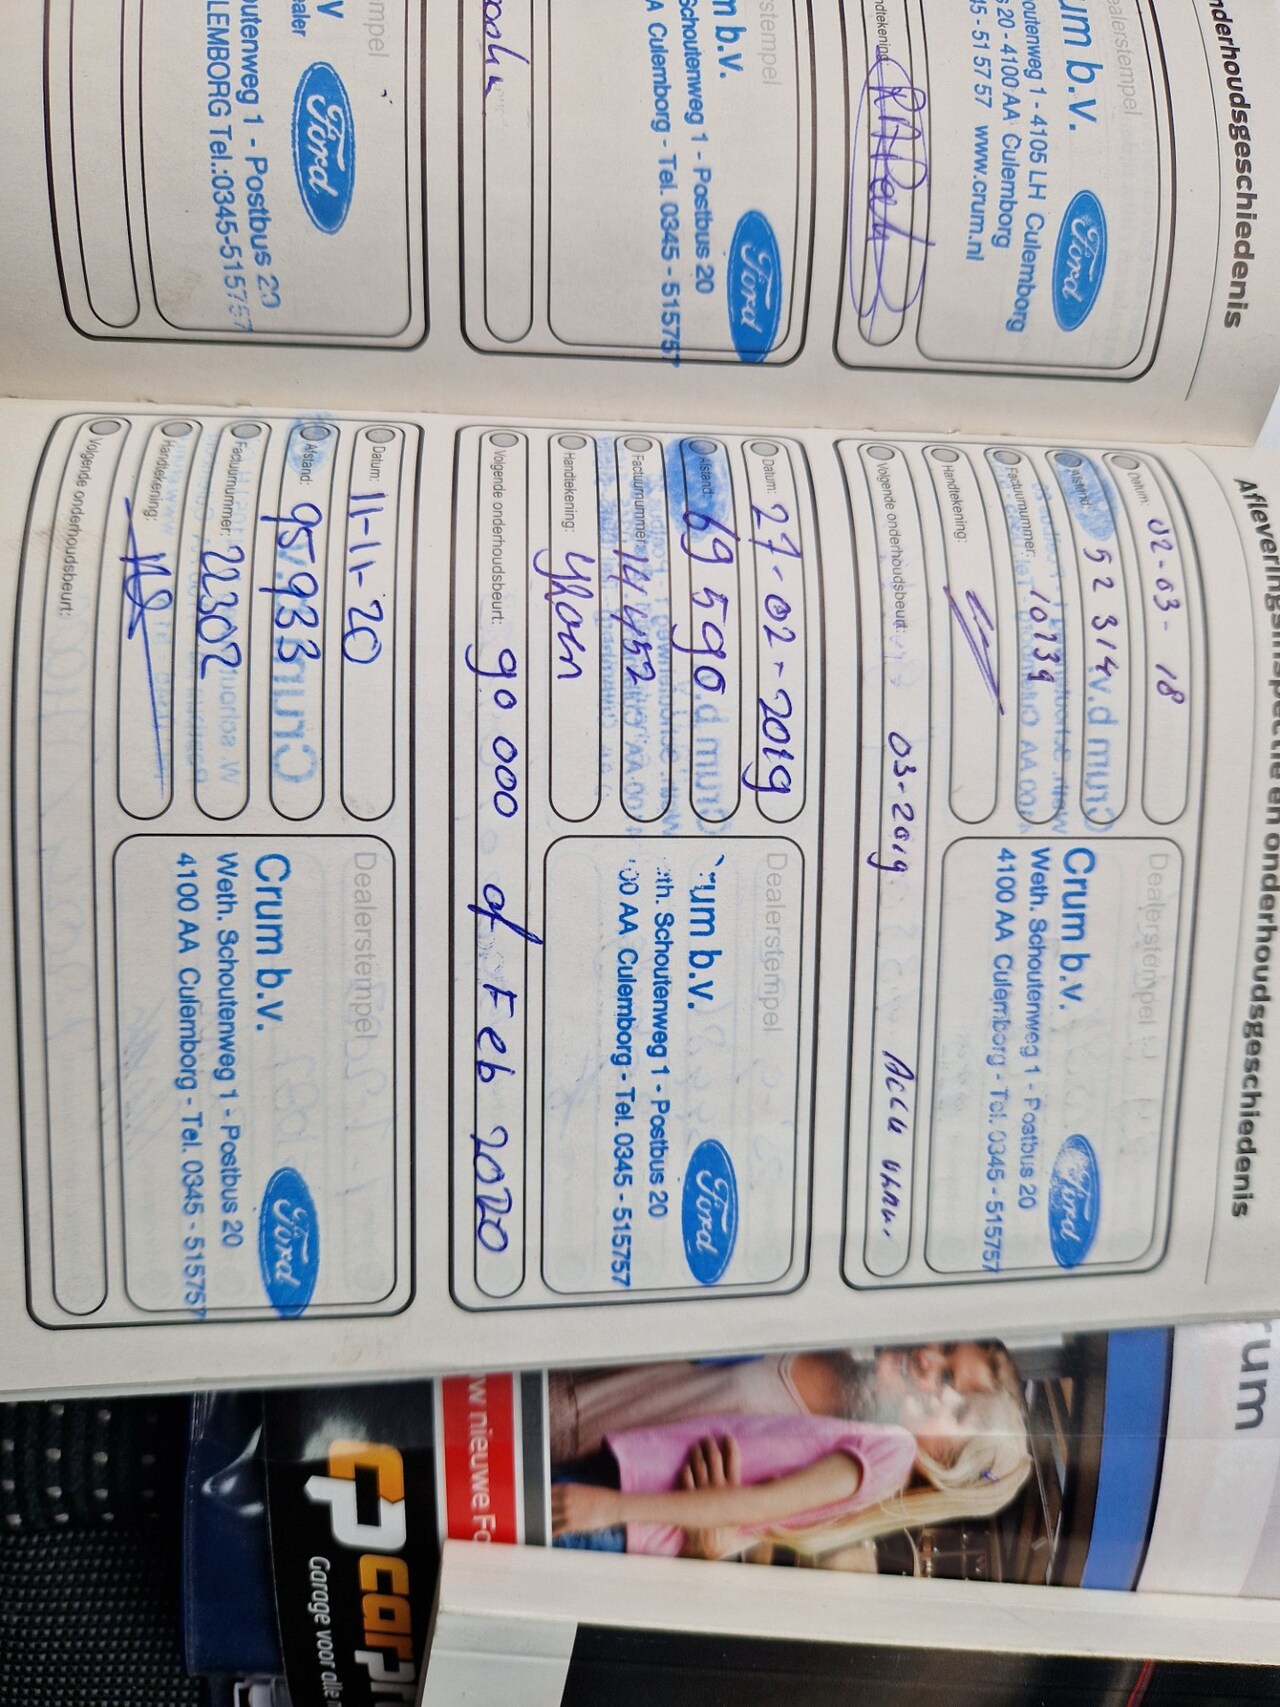 nderhoudsgeschiedenis
ealerstempel
um b.v.
outenweg 1 - 4105 LH Culemborg
20 - 4100 AA Culemborg
45 - 51 57 57 www.crum.nl
Ford
ndtekening:
stempel
m b.v.
Schoutenweg 1 - Postbus 20
A Culemborg - Tel. 0345 - 515757
Ford
mpel
V
ealer
outenweg 1 - Postbus 20
LEMBORG Tel.:0345-515757
Ford
Afleveringsinspectie en onderhoudsgeschiedenis
Datum: 02-03-18
Afstand: 52314
Factuurnummer: 10739
Handtekening:
Volgende onderhoudsbeurt: 03-2019 Accu
Dealerstempel
Crum b.v.
Weth. Schoutenweg 1 - Postbus 20
4100 AA Culemborg - Tel. 0345 - 515757
Ford
Datum: 27-02-2019
Afstand: 69590
Factuurnummer: 14452
Handtekening:
Volgende onderhoudsbeurt: 90 000 of Feb 2020
Dealerstempel
rum b.v.
th. Schoutenweg 1 - Postbus 20
00 AA Culemborg - Tel. 0345 - 515757
Ford
Datum: 11-11-20
Afstand: 95.933
Factuurnummer: 22302
Handtekening:
Volgende onderhoudsbeurt:
Dealerstempel
Crum b.v.
Weth. Schoutenweg 1 - Postbus 20
4100 AA Culemborg - Tel. 0345 - 515757
Ford
rum
w nieuwe Fo
carpr
Garage voor alle